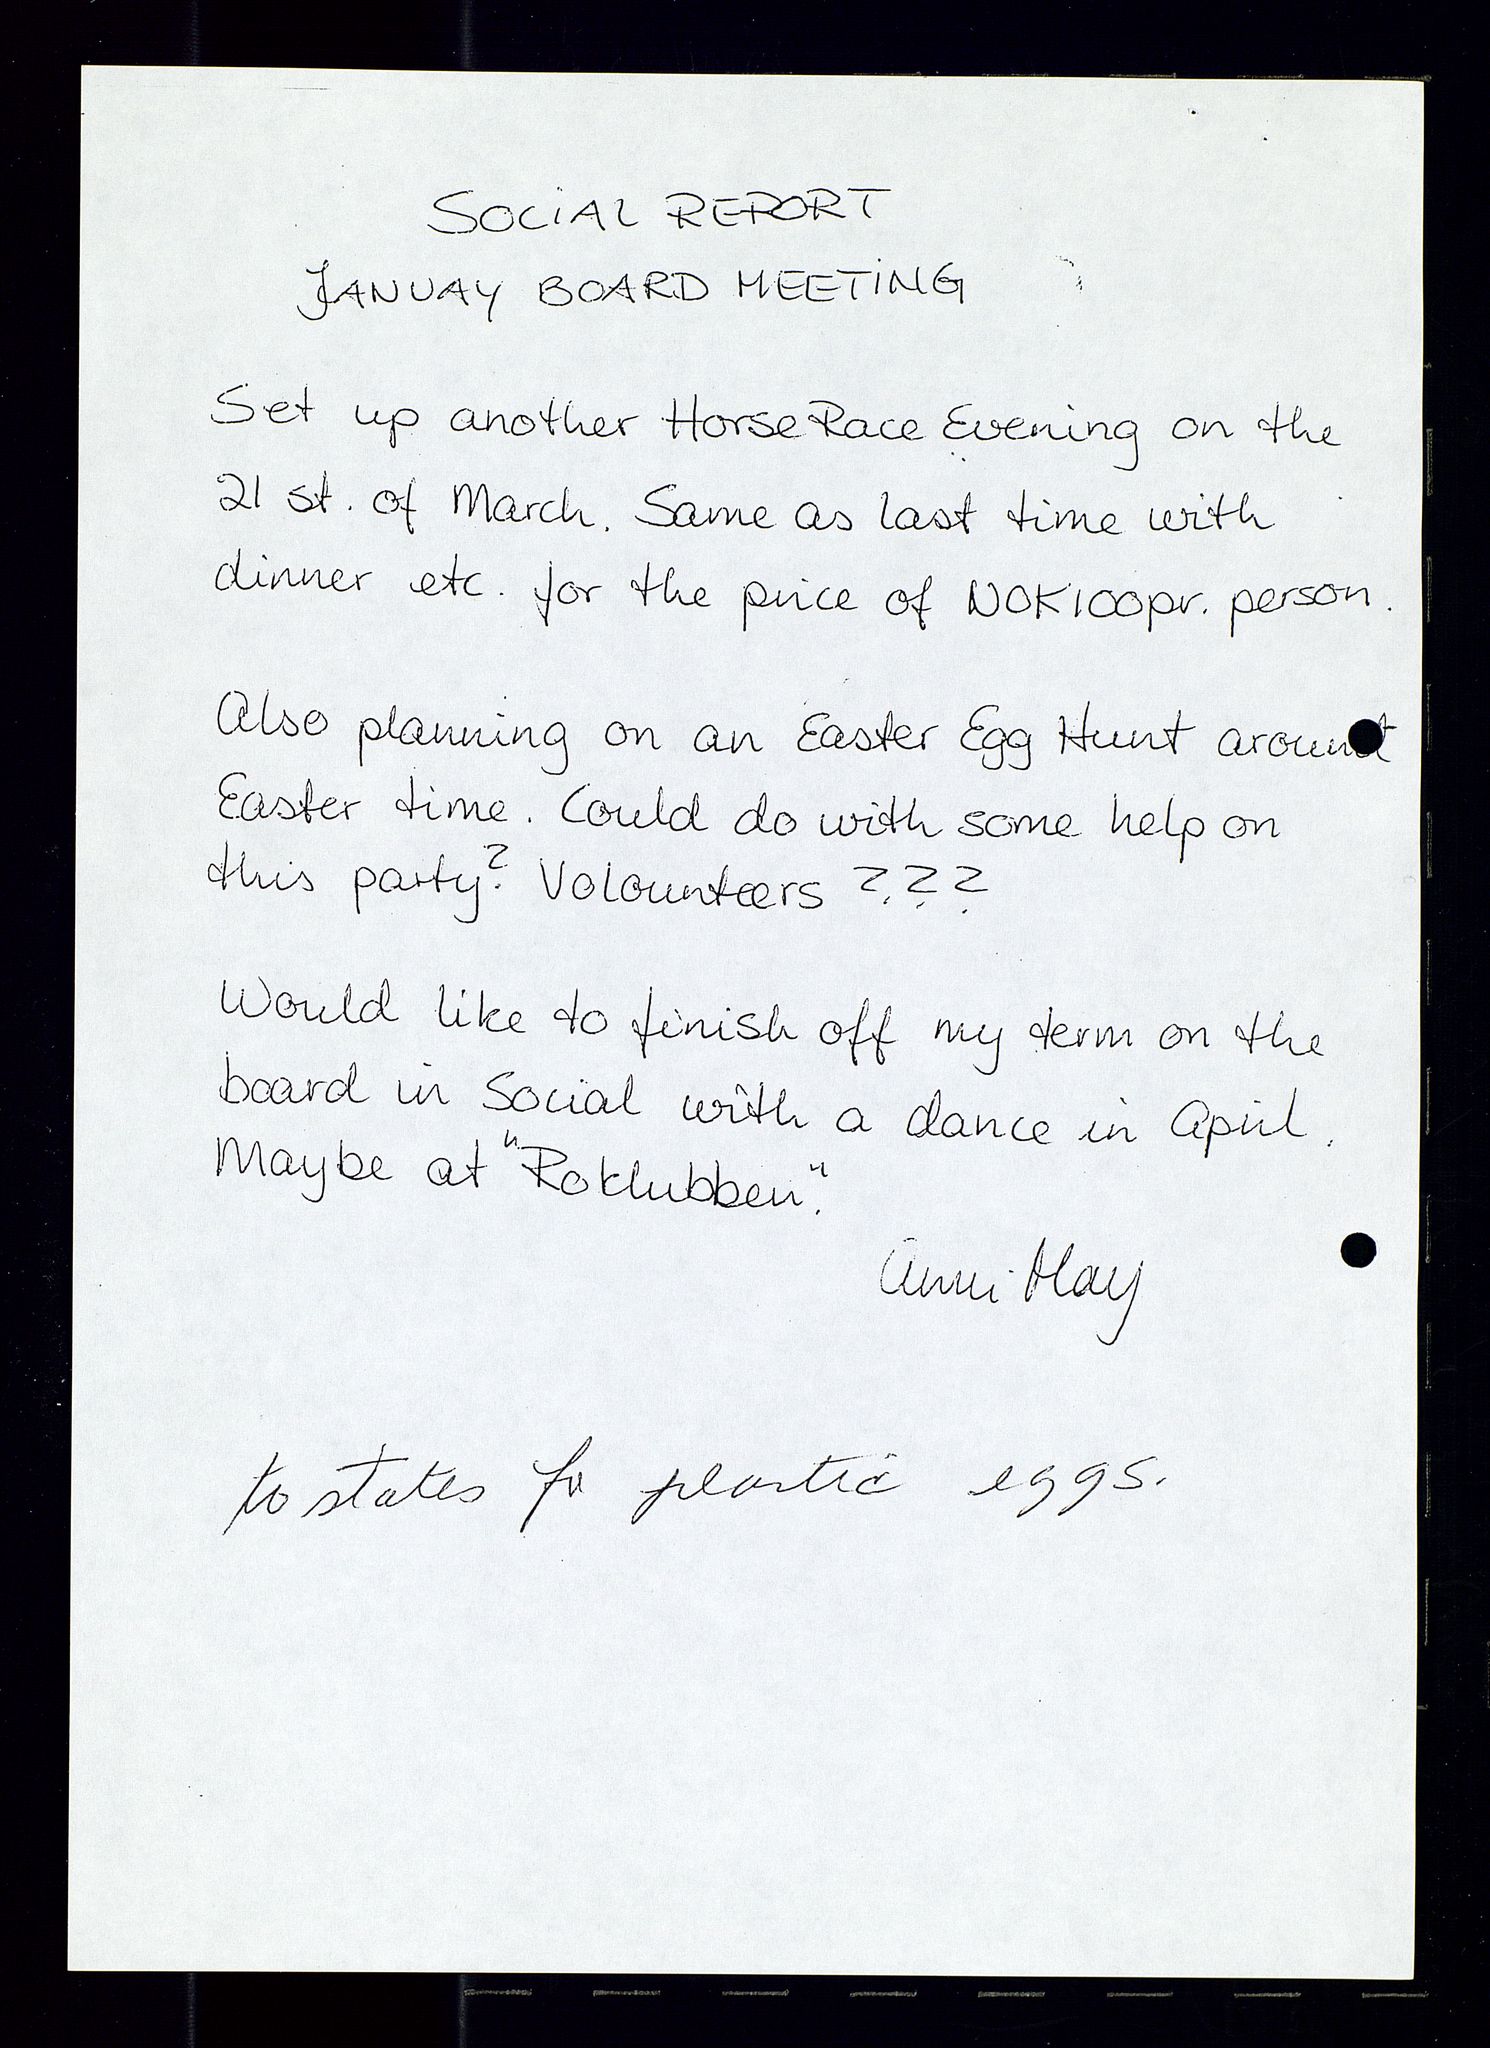 SOCIAL REPORT
JANUAY BOARD MEETING
Set up another Horse Race Evening on the
21 st. of March. Same as last time with
dinner etc. for the price of NOK100pr. person.
Also planning on an Easter Egg Hunt around
Easter time. Could do with some help on
this party? Volounteers ???
Would like to finish off my term on the
board in Social with a dance in April.
Maybe at "Roklubben".
Anni May
to states for plastic eggs.